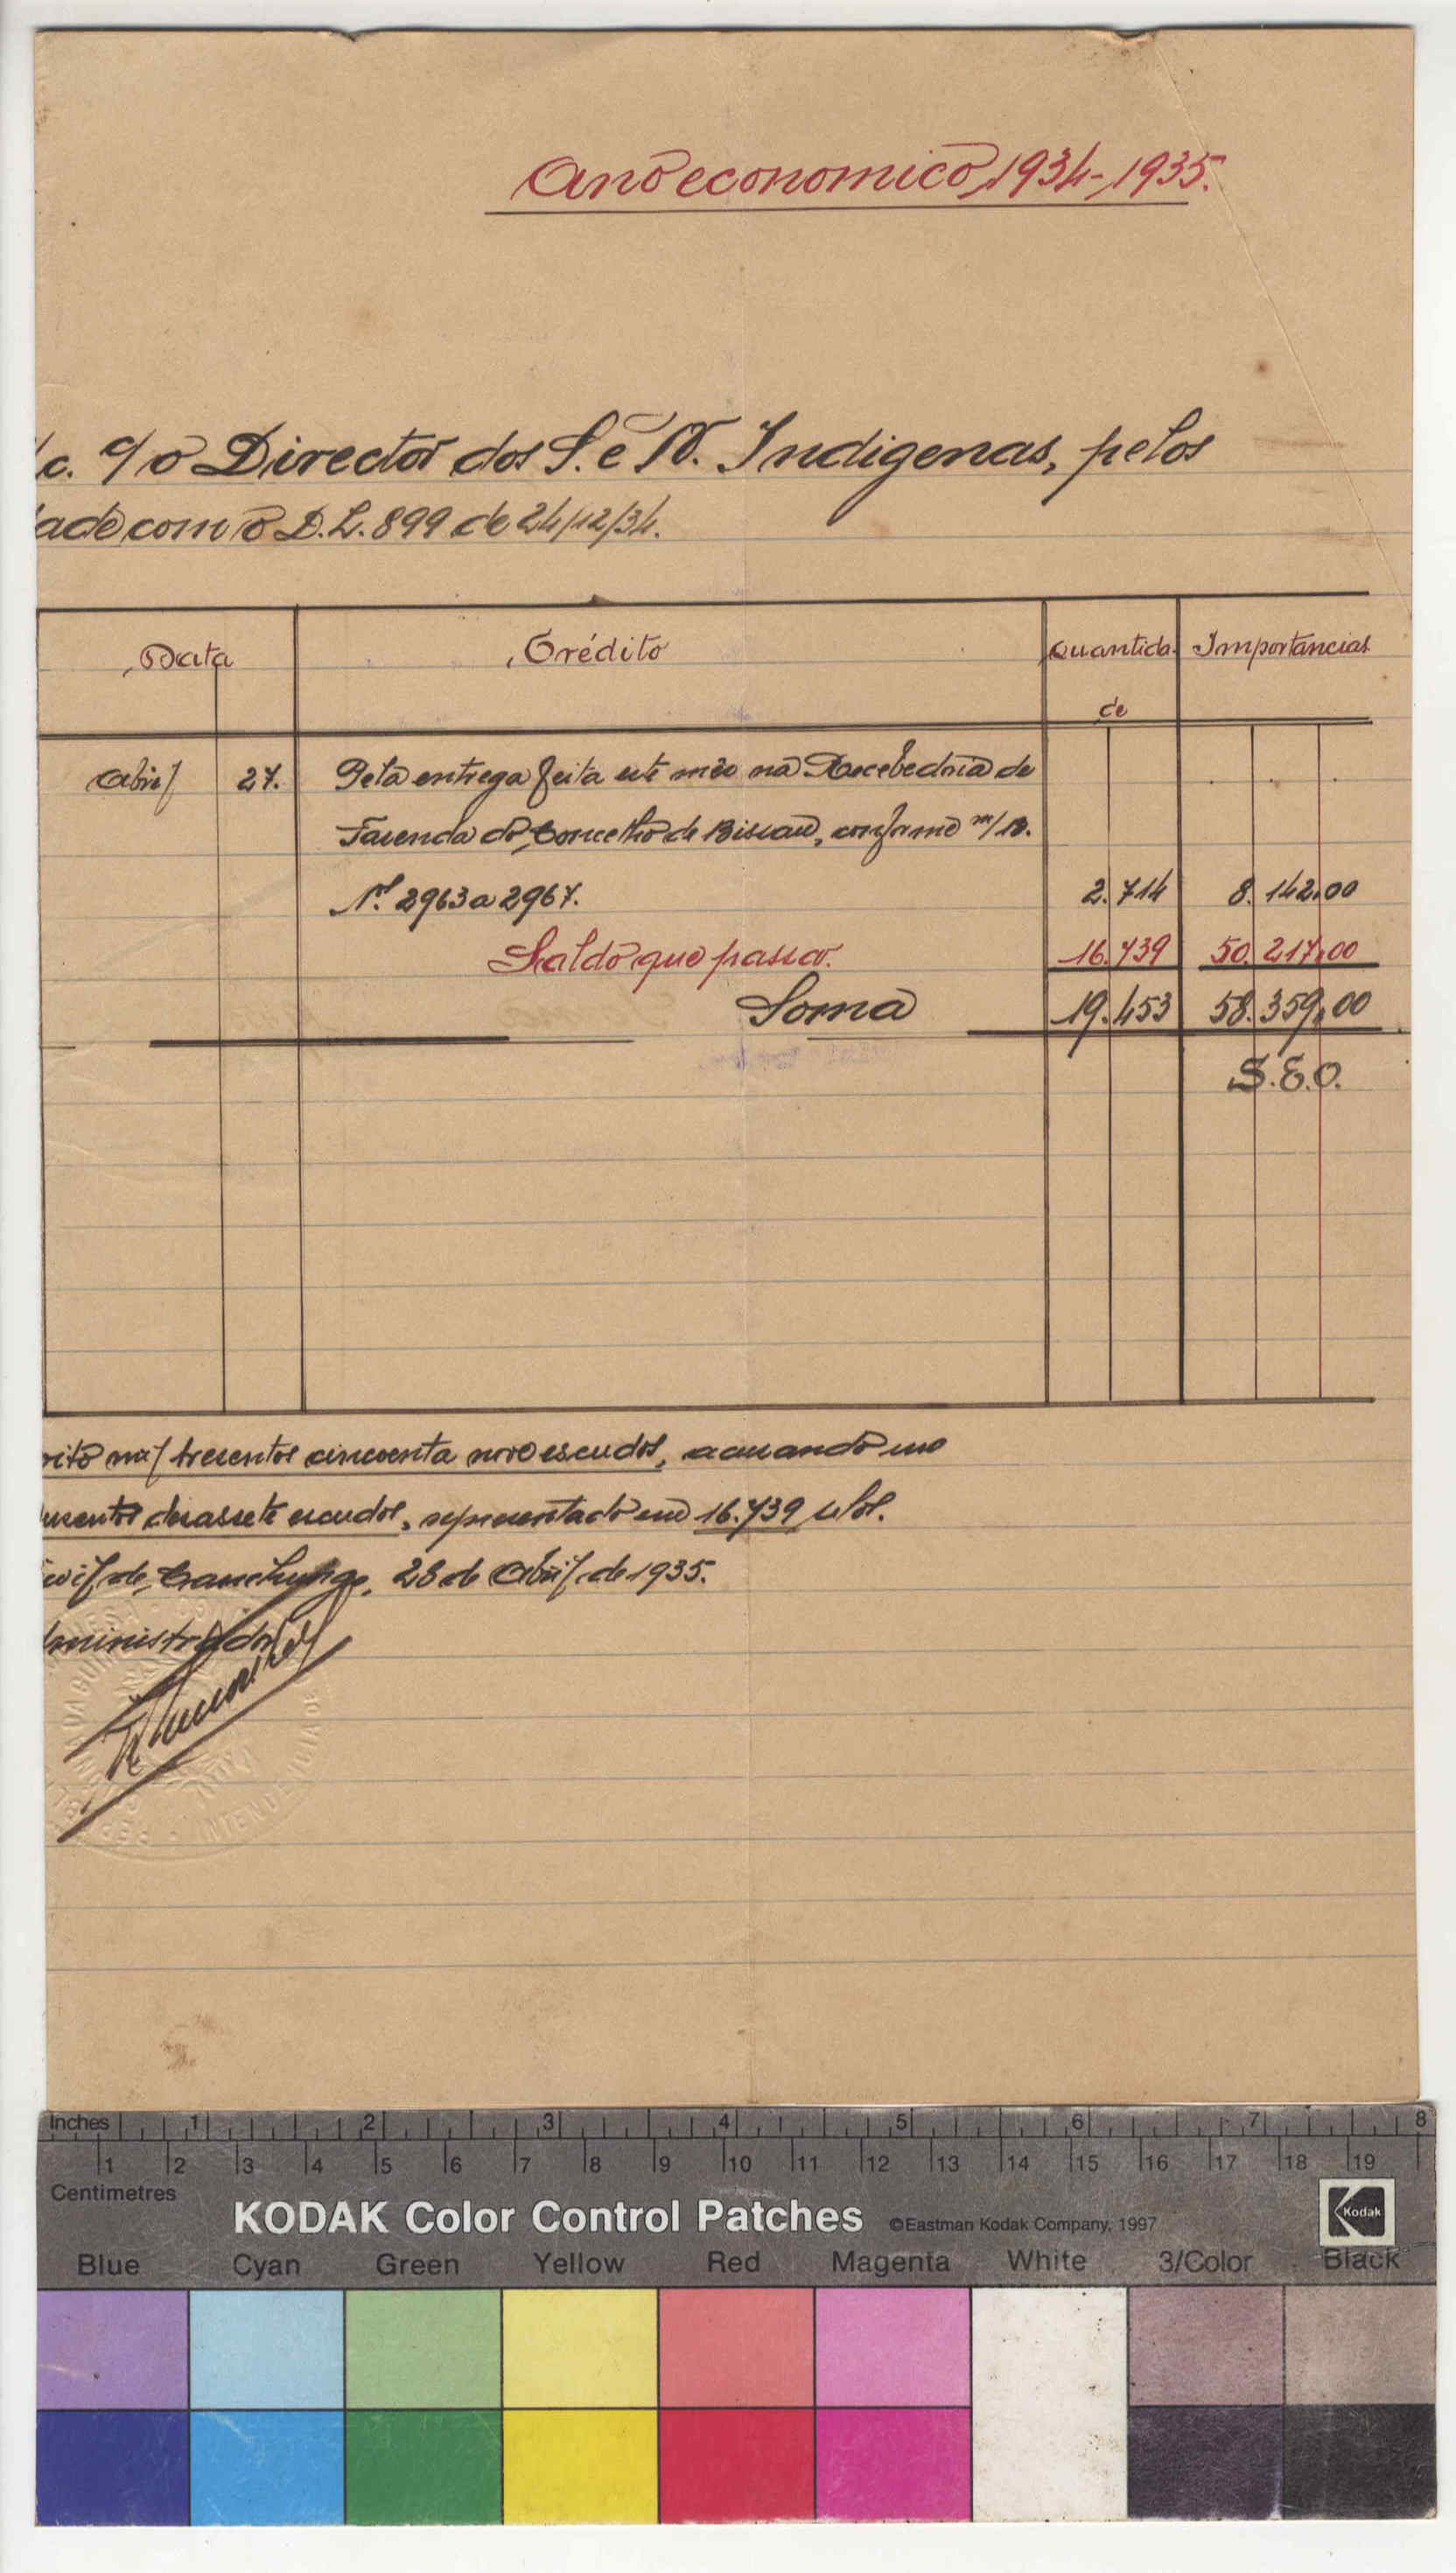 Ano economico 1934-1935.
c. c/o Director dos S. e N. Indigenas, pelos
ade com o D.L. 899 de 24/12/34.
Data Crédito Quantida- Importancias
de
Abril 27. Pela entrega feita este mês na Recebedoria de
Fazenda do Concelho de Bissau, conforme m/B.
Nº. 2963 a 2967. 2.714 8.142,00
Saldo que passa. 16.739 50.217,00
Soma 19.453 58.359,00
S.E.O.
oito mil tresentos cincoenta nove escudos, acusando um
usentos desassete escudos, representado em 16.739 selos.
ivil de Canchungo, 28 de Abril de 1935.
dministrador
INTENDENCIA
Inches 1 2 3 4 5 6 7 8
1 2 3 4 5 6 7 8 9 10 11 12 13 14 15 16 17 18 19
Centimetres
KODAK Color Control Patches ©Eastman Kodak Company, 1997 Kodak
Blue Cyan Green Yellow Red Magenta White 3/Color Black